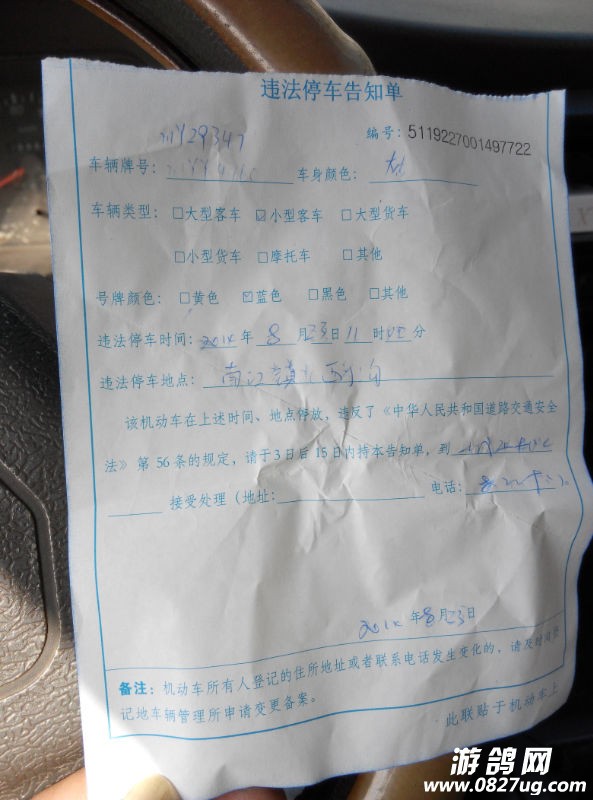 违法停车告知单
编号：5119227001497722
Y29347
车辆牌号： 车身颜色：
车辆类型：□大型客车 ☑小型客车 □大型货车
□小型货车 □摩托车 □其他
号牌颜色：□黄色 ☑蓝色 □黑色 □其他
违法停车时间：2014年8月23日11时 分
违法停车地点：南江镇
该机动车在上述时间、地点停放，违反了《中华人民共和国道路交通安全
法》第56条的规定，请于3日后15日内持本告知单，到
接受处理（地址： 电话：
2014年8月23日
备注：机动车所有人登记的住所地址或者联系电话发生变化的，请及时向登
记地车辆管理所申请变更备案。
此联贴于机动车上
游鸽网
www.0827ug.com